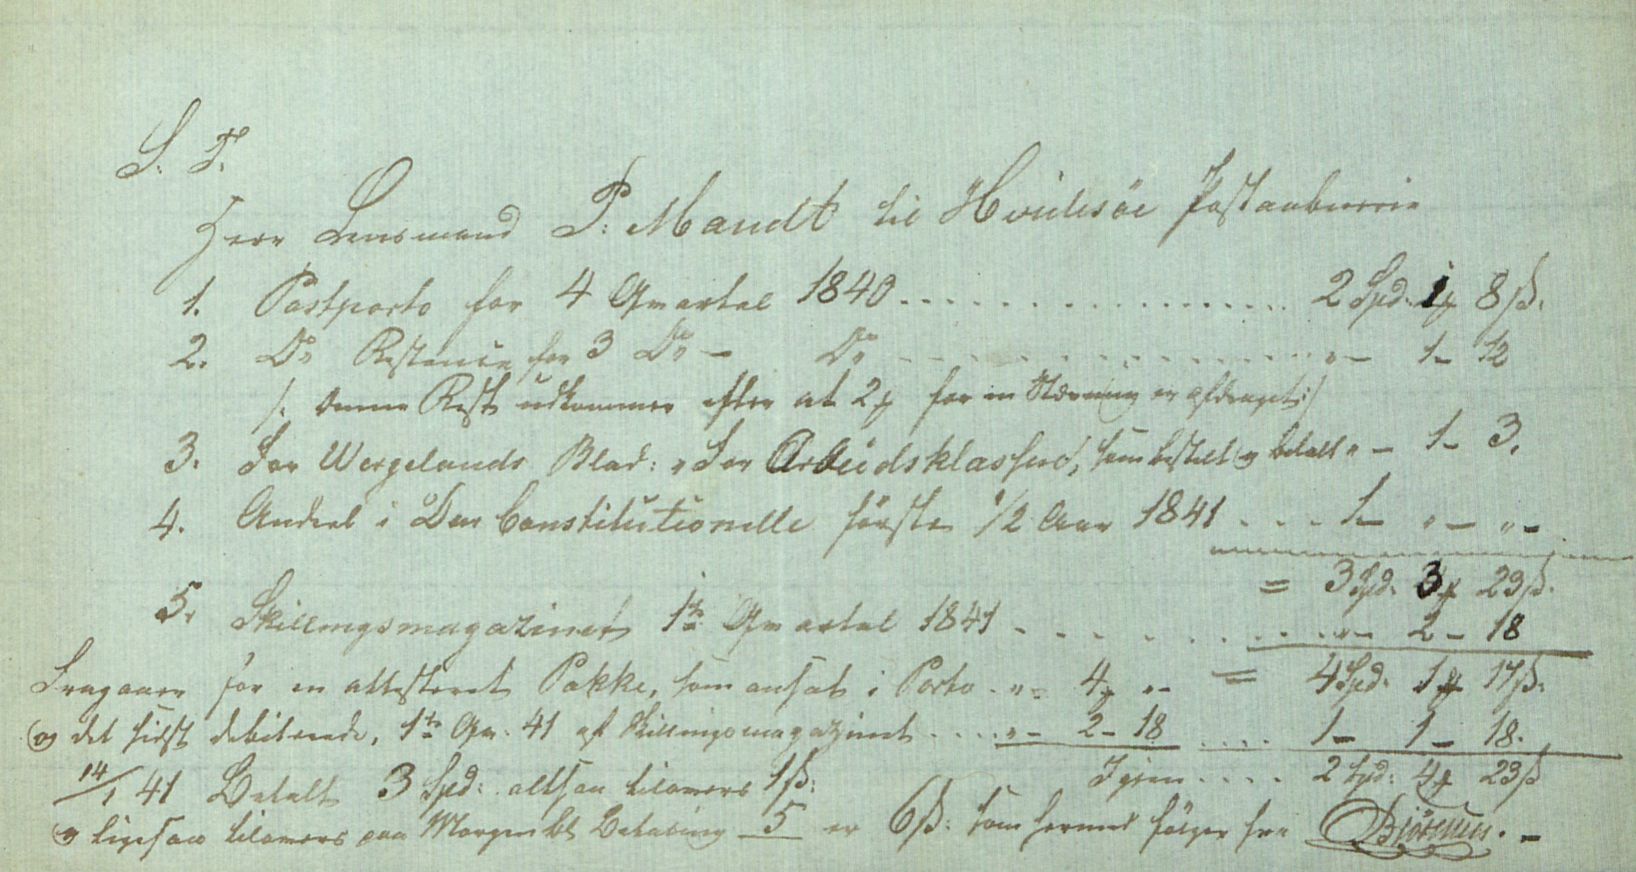 S. T.
Herr Lensmand P: Mandt til Hvidesöe Postaabnerie
1. Postporto for 4 Qvartal 1840 . . . . . . . . . . . . . . . . 2 Spd: 1 ꝑ 8 ß.
2. Do Restance for 3 Do – Do – – – – – – – – – – – – – – – „ – 1 – 12
/: denne Rest udkommer efter at 2 ꝑ for en er afdraget :/
3. For Wergelands Blad: „For Arbeidsklassen", som bestilt og betalt „ – 1 – 3.
4. Andeel i Den Constitutionelle förste 1/2 Aar 1841 . . . . 1 – „ – „ –
= 3 Spd. 3 ꝑ 23 ß.
5. Skillingsmagazinet 1te Qvartal 1841 . . . . . . . . . . „ – 2 – 18
= 4 Spd. 1 ꝑ 17 ß.
Fragaaer for en attesteret Pakke, som ansat i Porto . „ – 4 ꝑ „ –
og det sidst debiterede, 1te Qv. 41 af Skillingsmagazinet . . . . „ – 2 – 18 . . . . 1 – 1 – 18.
Igjen . . . . 2 Spd: 4 ꝑ 23 ß
14/1 41 Betalt 3 Spd: altsaa tilovers 1 ß:
og ligesaa tilovers paa Morgenbl. Betaling 5 er 6 ß: som hermed fölger fra Björnsen. –